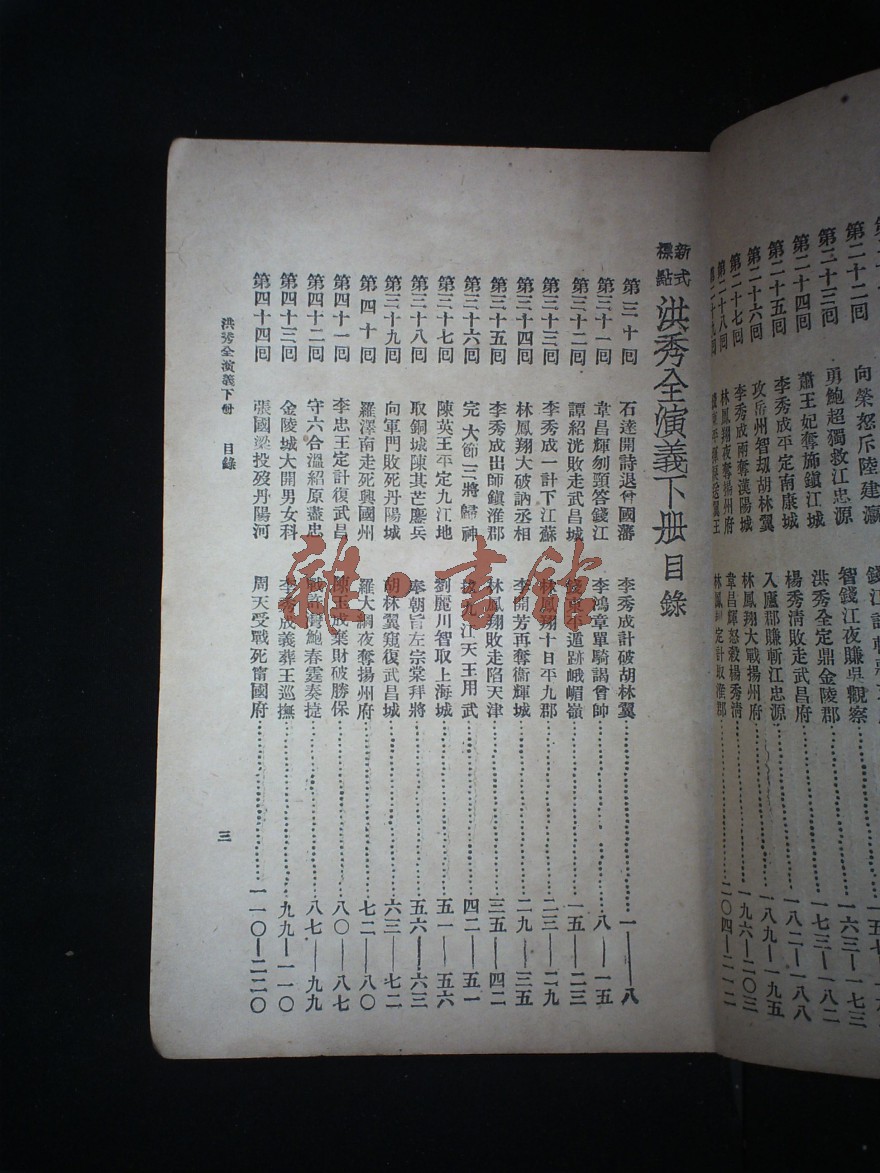 第二十二回 向榮怒斥陸建瀛
第二十三回 勇鮑超獨救江忠源 智錢江夜賺吳觀察 一六三—一七三
第二十四回 蕭王妃奪施鎮江城 洪秀全定鼎金陵郡 一七三—一八二
第二十五回 李秀成平定南康城 楊秀清敗走武昌府 一八二—一八八
第二十六回 攻岳州智劫胡林翼 入廬郡賺斬江忠源 一八九—一九五
第二十七回 李秀成兩奪漢陽城 林鳳翔大戰揚州府 一九六—二〇三
第二十八回 林鳳翔夜奪揚州府 韋昌輝怒殺楊秀清 二〇四—二一二
新式標點 洪秀全演義下册 目錄
第三十回 石達開詩退曾國藩 李秀成計破胡林翼 一—八
第三十一回 韋昌輝刎頸答錢江 李鴻章單騎謁曾帥 八—一五
第三十二回 譚紹洸敗走武昌城 錢東平遁跡峨嵋嶺 一五—二三
第三十三回 李秀成一計下江蘇 林鳳翔十日平九郡 二三—二九
第三十四回 林鳳翔大破訥丞相 李開芳再奪衞輝城 二九—三五
第三十五回 李秀成出師鎮淮郡 林鳳翔敗走陷天津 三五—四二
第三十六回 完大節三將歸神 拔九江天王用武 四二—五一
第三十七回 陳英王平定九江地 劉麗川智取上海城 五一—五六
第三十八回 取銅城陳其芒鏖兵 奉朝旨左宗棠拜將 五六—六三
第三十九回 向軍門敗死丹陽城 胡林翼窺復武昌城 六三—七二
第四十回 羅澤南走死興國州 羅大綱夜奪揚州府 七二—八〇
第四十一回 李忠王定計復武昌 陳玉成棄財破勝保 八〇—八七
第四十二回 守六合溫紹原盡忠 戰許灣鮑春霆奏捷 八七—九九
第四十三回 金陵城大開男女科 李秀成義葬王巡撫 九九—一一〇
第四十四回 張國梁投歿丹陽河 周天受戰死甯國府 一一〇—二二〇
洪秀全演義下册 目錄
三
雜·書館